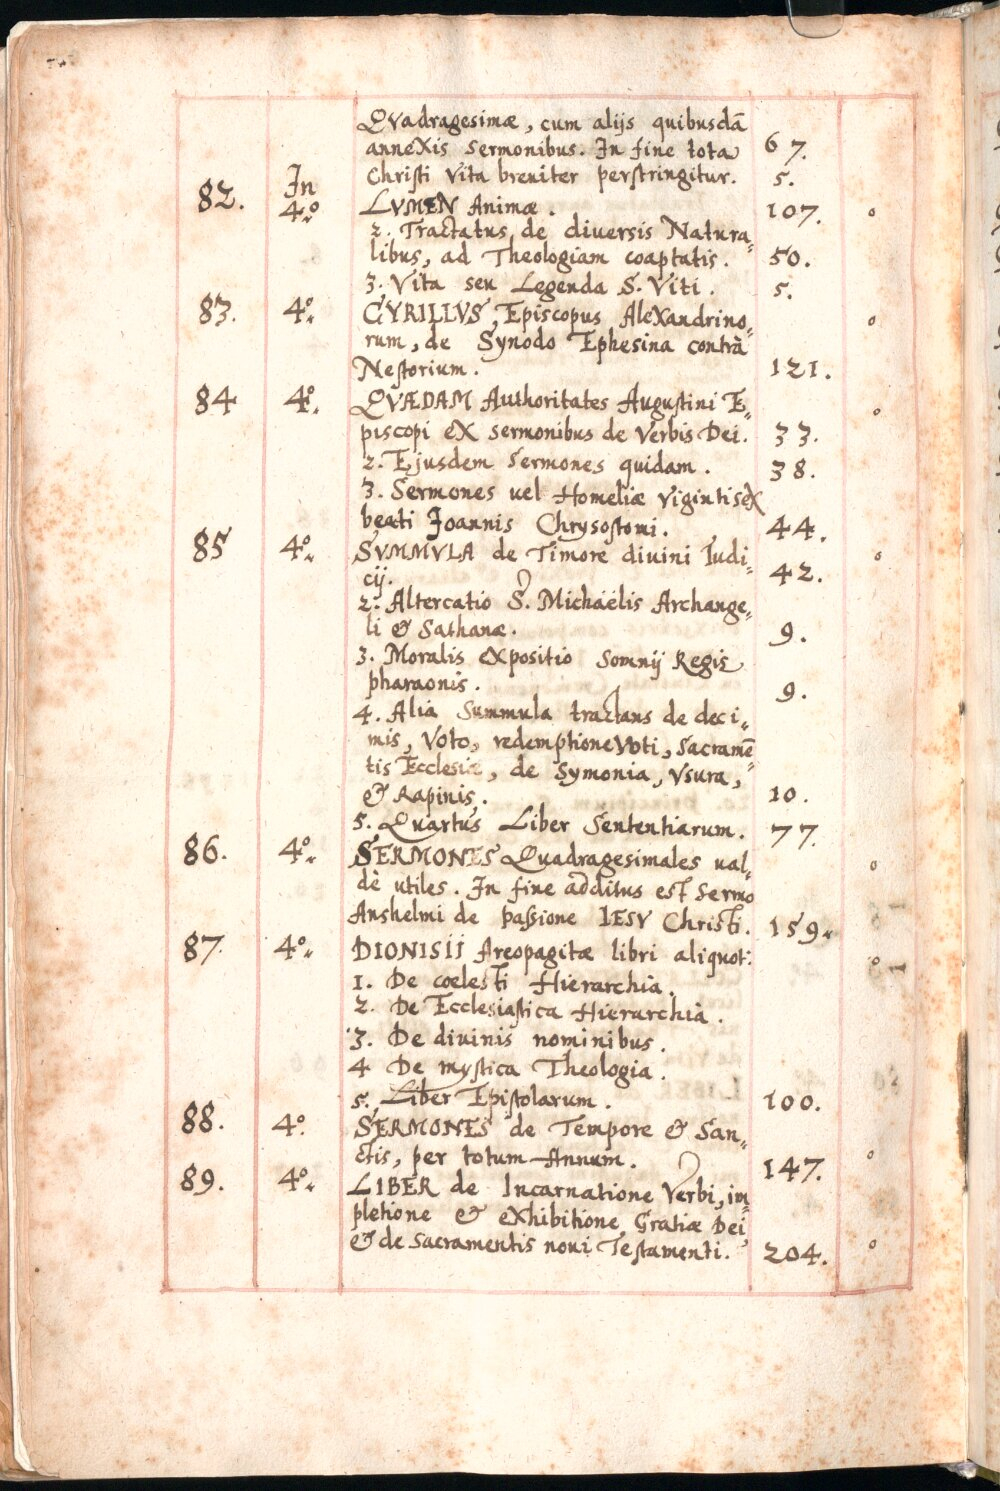 QVadragesimæ, cum alijs quibusdā
anneXis sermonibus. In fine tota 67.
Christi Vita breuiter perstringitur. 5.
82. In 4.º LVMEN Animæ. 107. o
2. Tractatus de diuersis Natura-
libus, ad Theologiam coaptatis. 50.
3. Vita seu Legenda S. Viti. 5.
83. 4.º CYRILLVS, Episcopus AleXandrino- o
rum, de Synodo Ephesina contrà
Nestorium. 121.
84 4.º QVÆDAM Authoritates Augustini E- o
piscopi eX sermonibus de Verbis Dei. 33.
2. Ejusdem Sermones quidam. 38.
3. Sermones uel Homeliæ VigintiseX
beati Joannis Chrysostomi. 44.
85 4.º SVMMVLA de Timore diuini Iudi- o
cij. 42.
2. Altercatio S. Michaëlis Archange-
li & Sathanæ. 9.
3. Moralis eXpositio Somnij Regis
pharaonis. 9.
4. Alia Summula tractans de deci-
mis, Voto, redemptione Voti, Sacramē-
tis Ecclesiæ, de Symonia, Vsura,
& Rapinis. 10.
5. Quartus Liber Sententiarum. 77.
86. 4.º SERMONES Quadragesimales ual- o
dè utiles. In fine additus est Sermo
Anshelmi de passione IESV Christi. 159.
87. 4.º DIONISII Areopagitæ libri aliquot: o
1. De coelesti Hierarchia.
2. De Ecclesiastica Hierarchia.
3. De diuinis nominibus.
4 De mystica Theologia.
5. Liber Epistolarum. 100.
88. 4.º SERMONES de Tempore & San-
ctis, per totum Annum. 147. o
89. 4.º LIBER de Incarnatione Verbi, im-
pletione & eXhibitione Gratiæ Dei,
& de Sacramentis noui Testamenti. 204. o